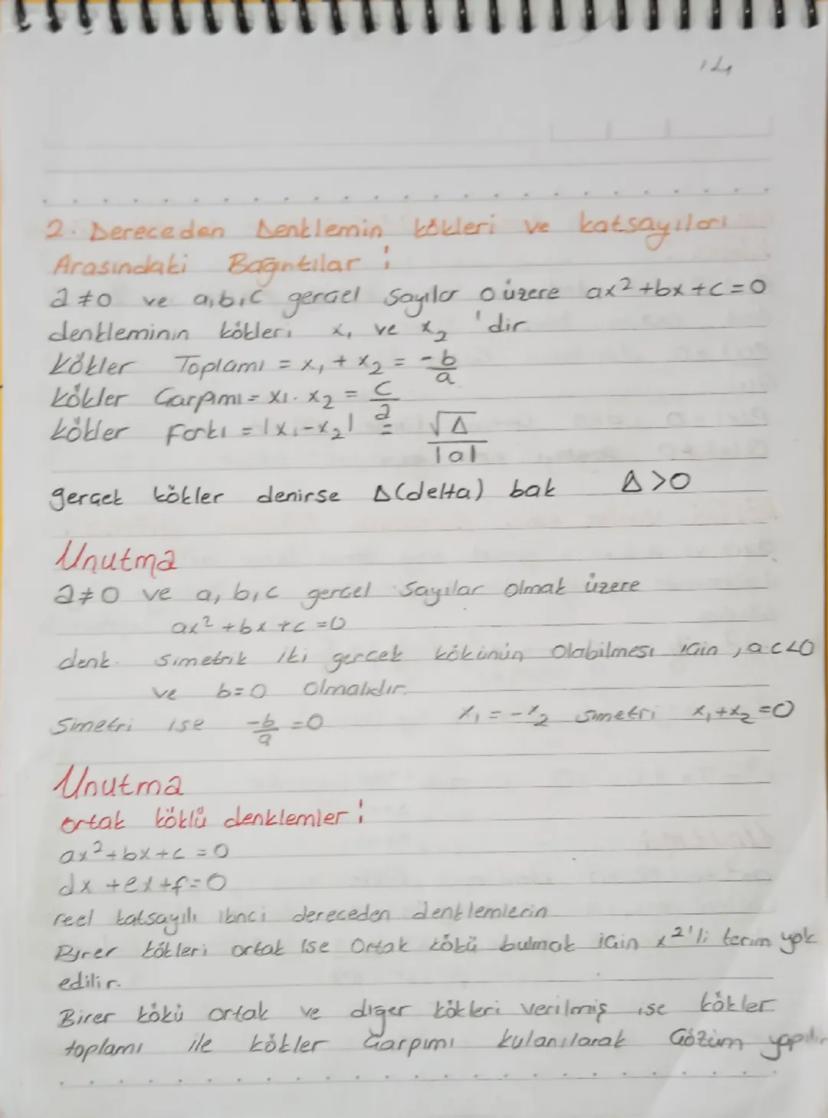 14
2. Dereceden Denklemin kökleri ve katsayıları
Arasındaki Bağıntılar :
a≠0 ve a,b,c gercel sayılar oüzere ax²+bx+c=0
denkleminin kökleri x₁ ve x₂ 'dir
kökler Toplamı = x₁ + x₂ = -b/a
kökler Çarpımı = x₁ . x₂ = c/a
kökler farkı = |x₁-x₂| = √Δ/|a|
gerçek kökler denirse Δ(delta) bak Δ>0
Unutma
a≠0 ve a, b, c gercel sayılar olmak üzere
ax²+bx+c=0
denk. simetrik iki gerçek kökünün olabilmesi için, a.c<0
ve b=0 olmalıdır.
Simetri ise -b/a =0 x₁=-x₂ simetri x₁+x₂=0
Unutma
ortak köklü denklemler :
ax²+bx+c=0
dx+ex+f=0
reel katsayılı ikinci dereceden denklemlerin
Birer kökleri ortak ise ortak kökü bulmak için x²'li terim yok
edilir.
Birer kökü ortak ve diğer kökleri verilmiş ise kökler
toplamı ile kökler çarpımı kulanılarak Çözüm yapılır